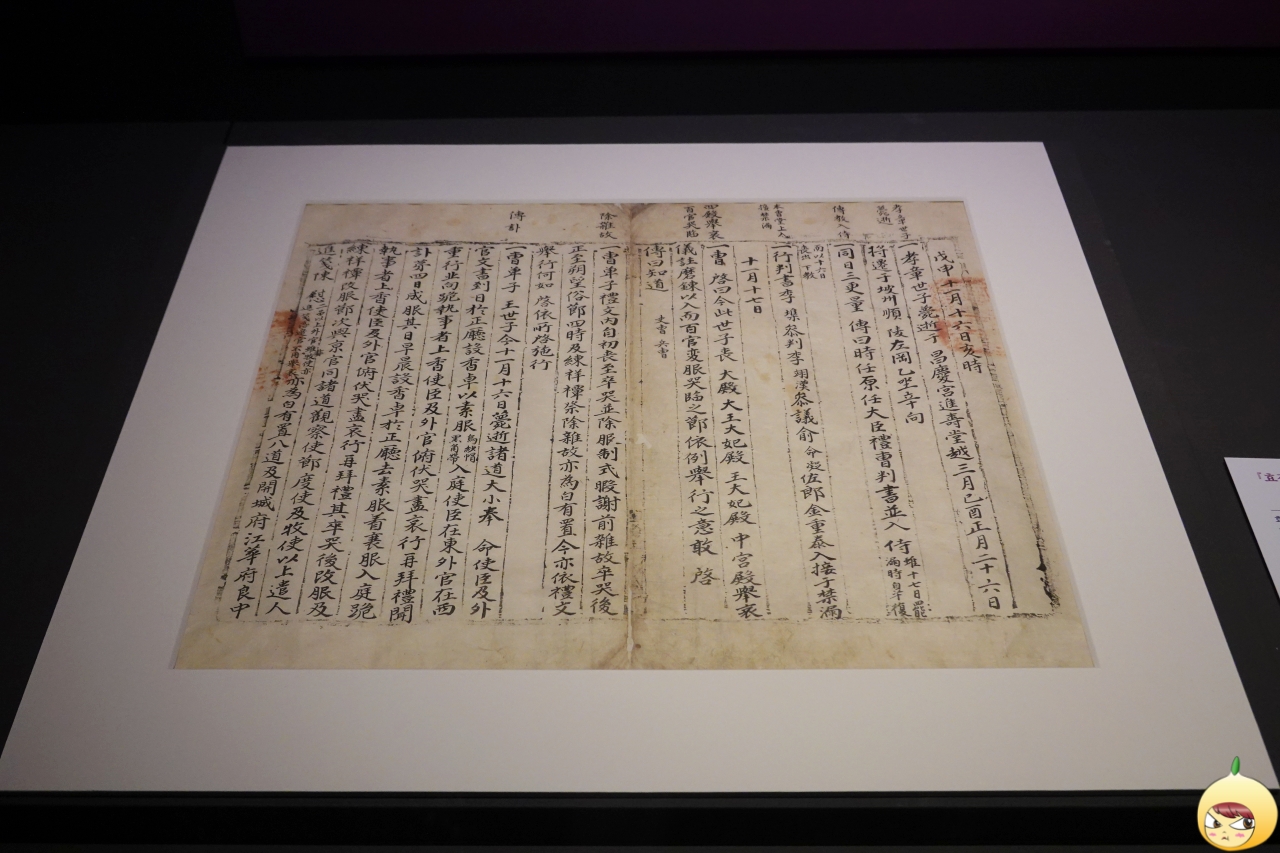 戊甲十一月十六日亥時
孝章世子
薨逝
一孝章世子薨逝于 昌慶宮進壽堂越三月己酉正月二十六日
將遷于坡州順 陵左岡乙坐辛向
傳教入侍
一同日三更量 傳曰時任原任大臣禮曹判書並入 侍
本曹堂上
一行判書李 參判李 參議俞 命凝佐郎金重泰入接于禁漏
而以十六日
出 下教
十一月十七日
四殿舉哀
百官哭臨
一曹 啓曰今此世子喪 大殿 大王大妃殿 王大妃殿 中宮殿舉哀
儀註磨鍊以入而百官變服哭臨之節依例舉行之意敢 啓
傳曰知道 吏曹 兵曹
除雜故
一曹單子禮文內自初喪至卒哭並除服制式暇謝前雜故卒哭後
正至朔望俗節四時及練祥禫祭除雜故亦為白有置今亦依禮文
舉行何如 啓依所啓施行
傳訃
一曹單子 王世子今十一月十六日薨逝諸道大小奉 命使臣及外
官文書到日於正廳設香卓以素服入庭使臣在東外官在西
重行北向跪執事者上香使臣及外官俯伏哭盡哀行再拜禮聞
訃第四日成服其日早晨設香卓於正廳去素服着衰服入庭跪
執事者上香使臣及外官俯伏哭盡哀行再拜禮其卒哭後改服及
練祥禫改服節次與京官同諸道觀察使節度使及牧使以上遣人
進箋陳 慰 亦為白有置八道及開城府江華府良中